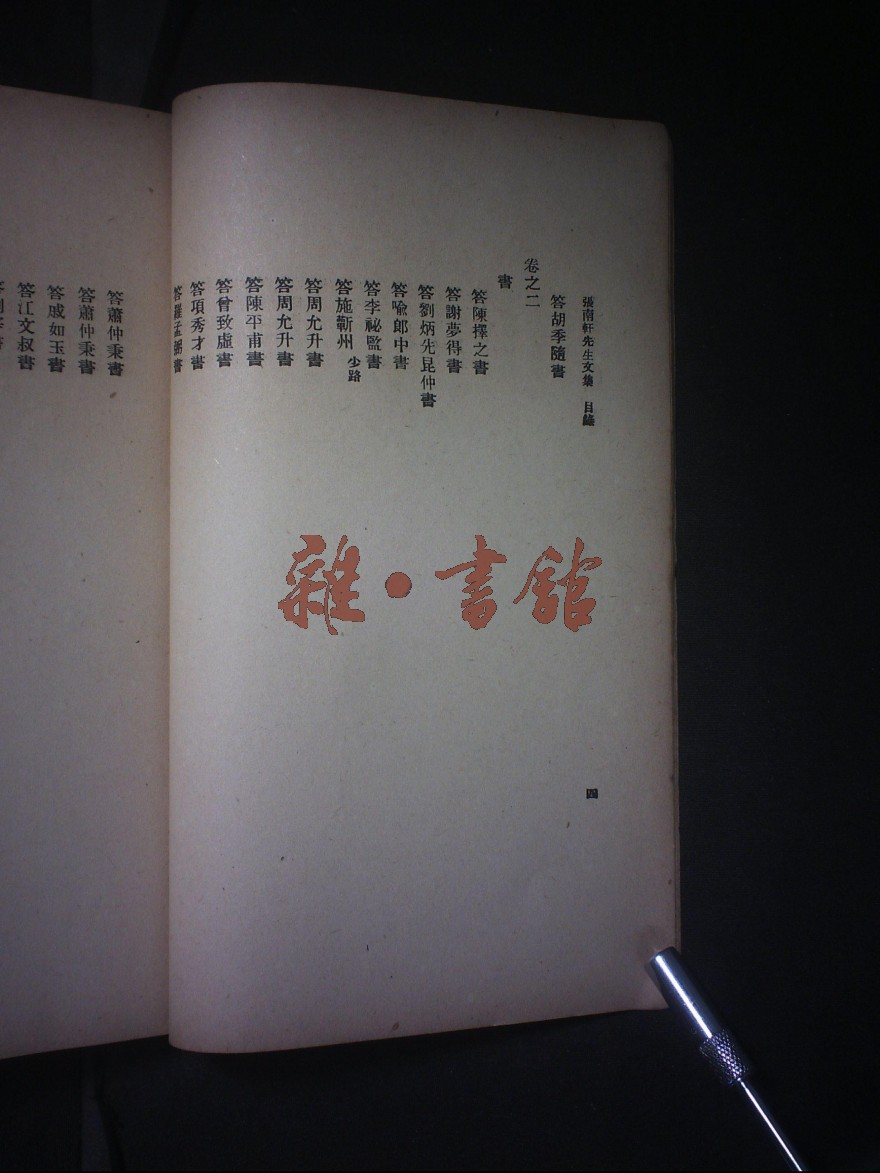 張南軒先生文集 目錄
四
答胡季隨書
卷之二
書
答陳擇之書
答謝夢得書
答劉炳先昆仲書
答喩郎中書
答李祕監書
答施蘄州 少路
答周允升書
答周允升書
答陳平甫書
答曾致虛書
答項秀才書
答羅孟弼書
答蕭仲秉書
答蕭仲秉書
答戚如玉書
答江文叔書
雜·書館